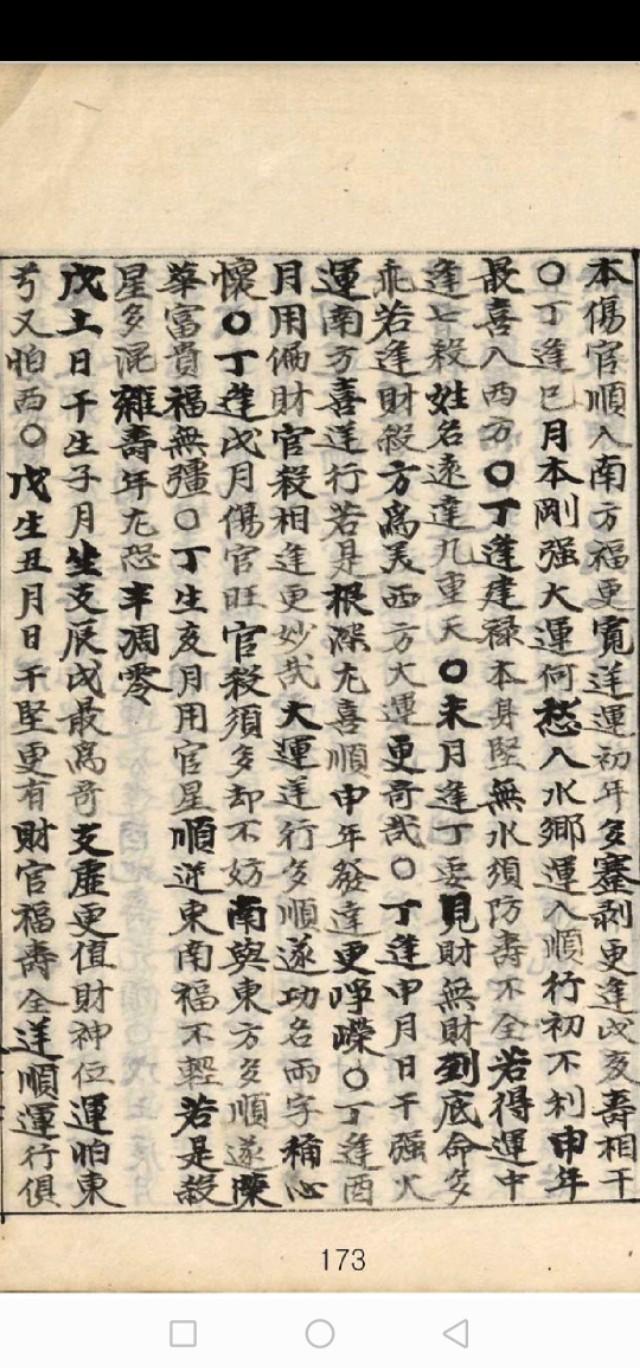 本傷官順入南方福更寬逆運初年多蹇剥更逢戌亥壽相干
〇丁逢巳月本剛强大運何愁入水鄉運入順行初不利申年
最喜入西方〇丁逢建禄本身堅無水須防壽不全若得運中
逢七殺姓名遠達九重天〇未月逢丁要見財無財到底命多
乖若逢財殺方爲美西方大運更奇哉〇丁逢申月日干强火
運南方喜逆行若是根深尤喜順中年發達更崢嶸〇丁逢酉
月用偏財官殺相逢更妙哉大運逆行多順遂功名兩字稱心
懷〇丁逢戌月傷官旺官殺須多却不妨南與東方多順遂榮
華富貴福無彊〇丁生亥月用官星順逆東南福不輕若是殺
星多混雜壽年尤恐半凋零
戊土日干生子月坐支辰戌最爲奇支虛更值財神位運怕東
兮又怕西〇戊生丑月日干堅更有財官福壽全逆順運行俱
173